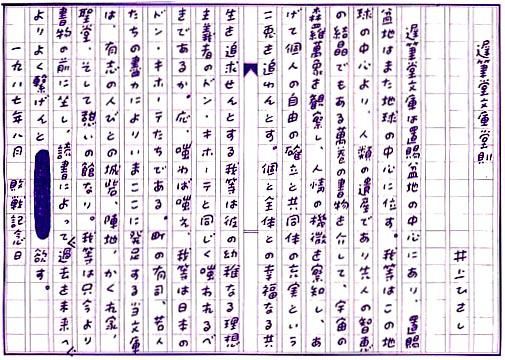 遅筆堂文庫堂則
井上ひさし
遅筆堂文庫は置賜盆地の中心にあり、置賜
盆地はまた地球の中心に位す。我等はこの地
球の中心より、人類の遺産であり先人の智恵
の結晶でもある萬巻の書物を介して、宇宙の
森羅萬象を観察し、人情の機微を察知し、あ
げて個人の自由の確立と共同体の充実という
二兎を追わんとす。個と全体との幸福なる共
生を追求せんとする我等は彼の幼稚なる理想
主義者のドン・キホーテと同じく嗤われるべ
きであるか。応、嗤わば嗤え。我等は日本の
ドン・キホーテたちである。町の有司、若人
たちの盡力によりいまここに発足する当文庫
は、有志の人びとの城砦、陣地、かくれ家、
聖堂、そして憩いの館なり。我等は只今より
書物の前に坐し、読書によって、過去を未来へ
よりよく繋げんと欲す。
一九八七年八月 敗戦記念日